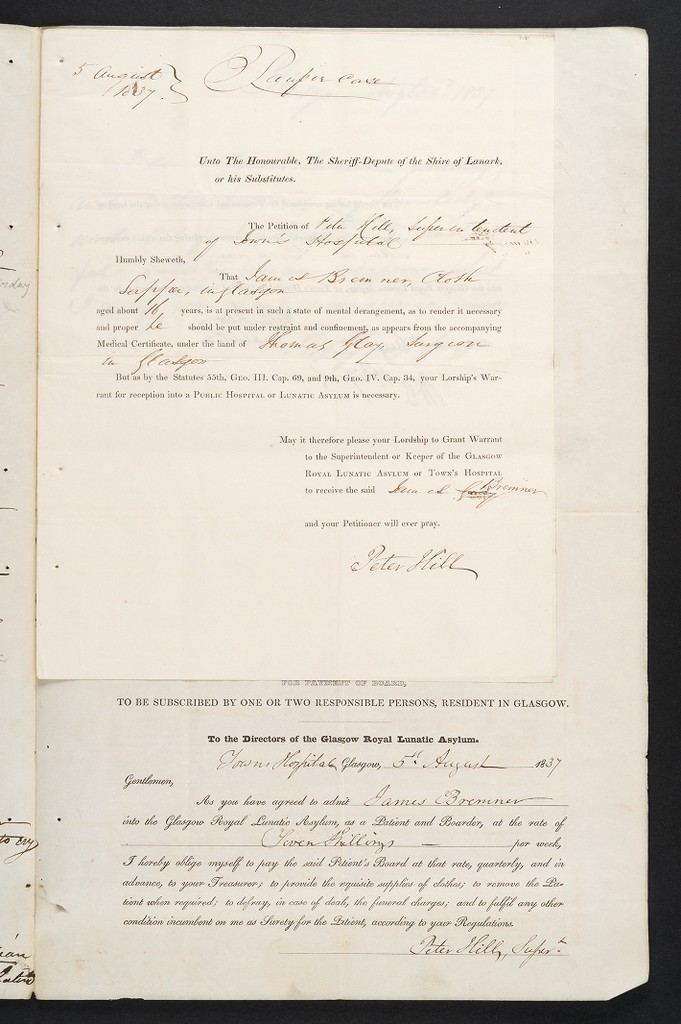 5 August
1837.
Pauper Case
Unto The Honourable, The Sheriff-Depute of the Shire of Lanark,
or his Substitutes.
The Petition of Peter Hill, Superintendent
of Town's Hospital
Humbly Sheweth,
That James Bremner, Cloth
Lapper, in Glasgow
aged about 16, years, is at present in such a state of mental derangement, as to render it necessary
and proper he should be put under restraint and confinement, as appears from the accompanying
Medical Certificate, under the hand of Thomas Gray, Surgeon
in Glasgow
But as by the Statutes 55th, Geo. III. Cap. 69, and 9th, Geo. IV. Cap. 34, your Lorship's War-
rant for reception into a Public Hospital or Lunatic Asylum is necessary.
May it therefore please your Lordship to Grant Warrant
to the Superintendent or Keeper of the Glasgow
Royal Lunatic Asylum or Town's Hospital
to receive the said James Bremner
and your Petitioner will ever pray.
Peter Hill
FOR PAYMENT OF BOARD,
TO BE SUBSCRIBED BY ONE OR TWO RESPONSIBLE PERSONS, RESIDENT IN GLASGOW.
To the Directors of the Glasgow Royal Lunatic Asylum.
Towns Hospital, Glasgow, 5th August 1837
Gentlemen,
As you have agreed to admit James Bremner
into the Glasgow Royal Lunatic Asylum, as a Patient and Boarder, at the rate of
Seven Shillings — per week,
I hereby oblige myself to pay the said Patient's Board at that rate, quarterly, and in
advance, to your Treasurer; to provide the rquisite supplies of clothes; to remove the Pa-
tient when required; to defray, in case of death, the funeral charges; and to fulfil any other
condition incumbent on me as Surety for the Patient, according to your Regulations.
Peter Hill, Supert